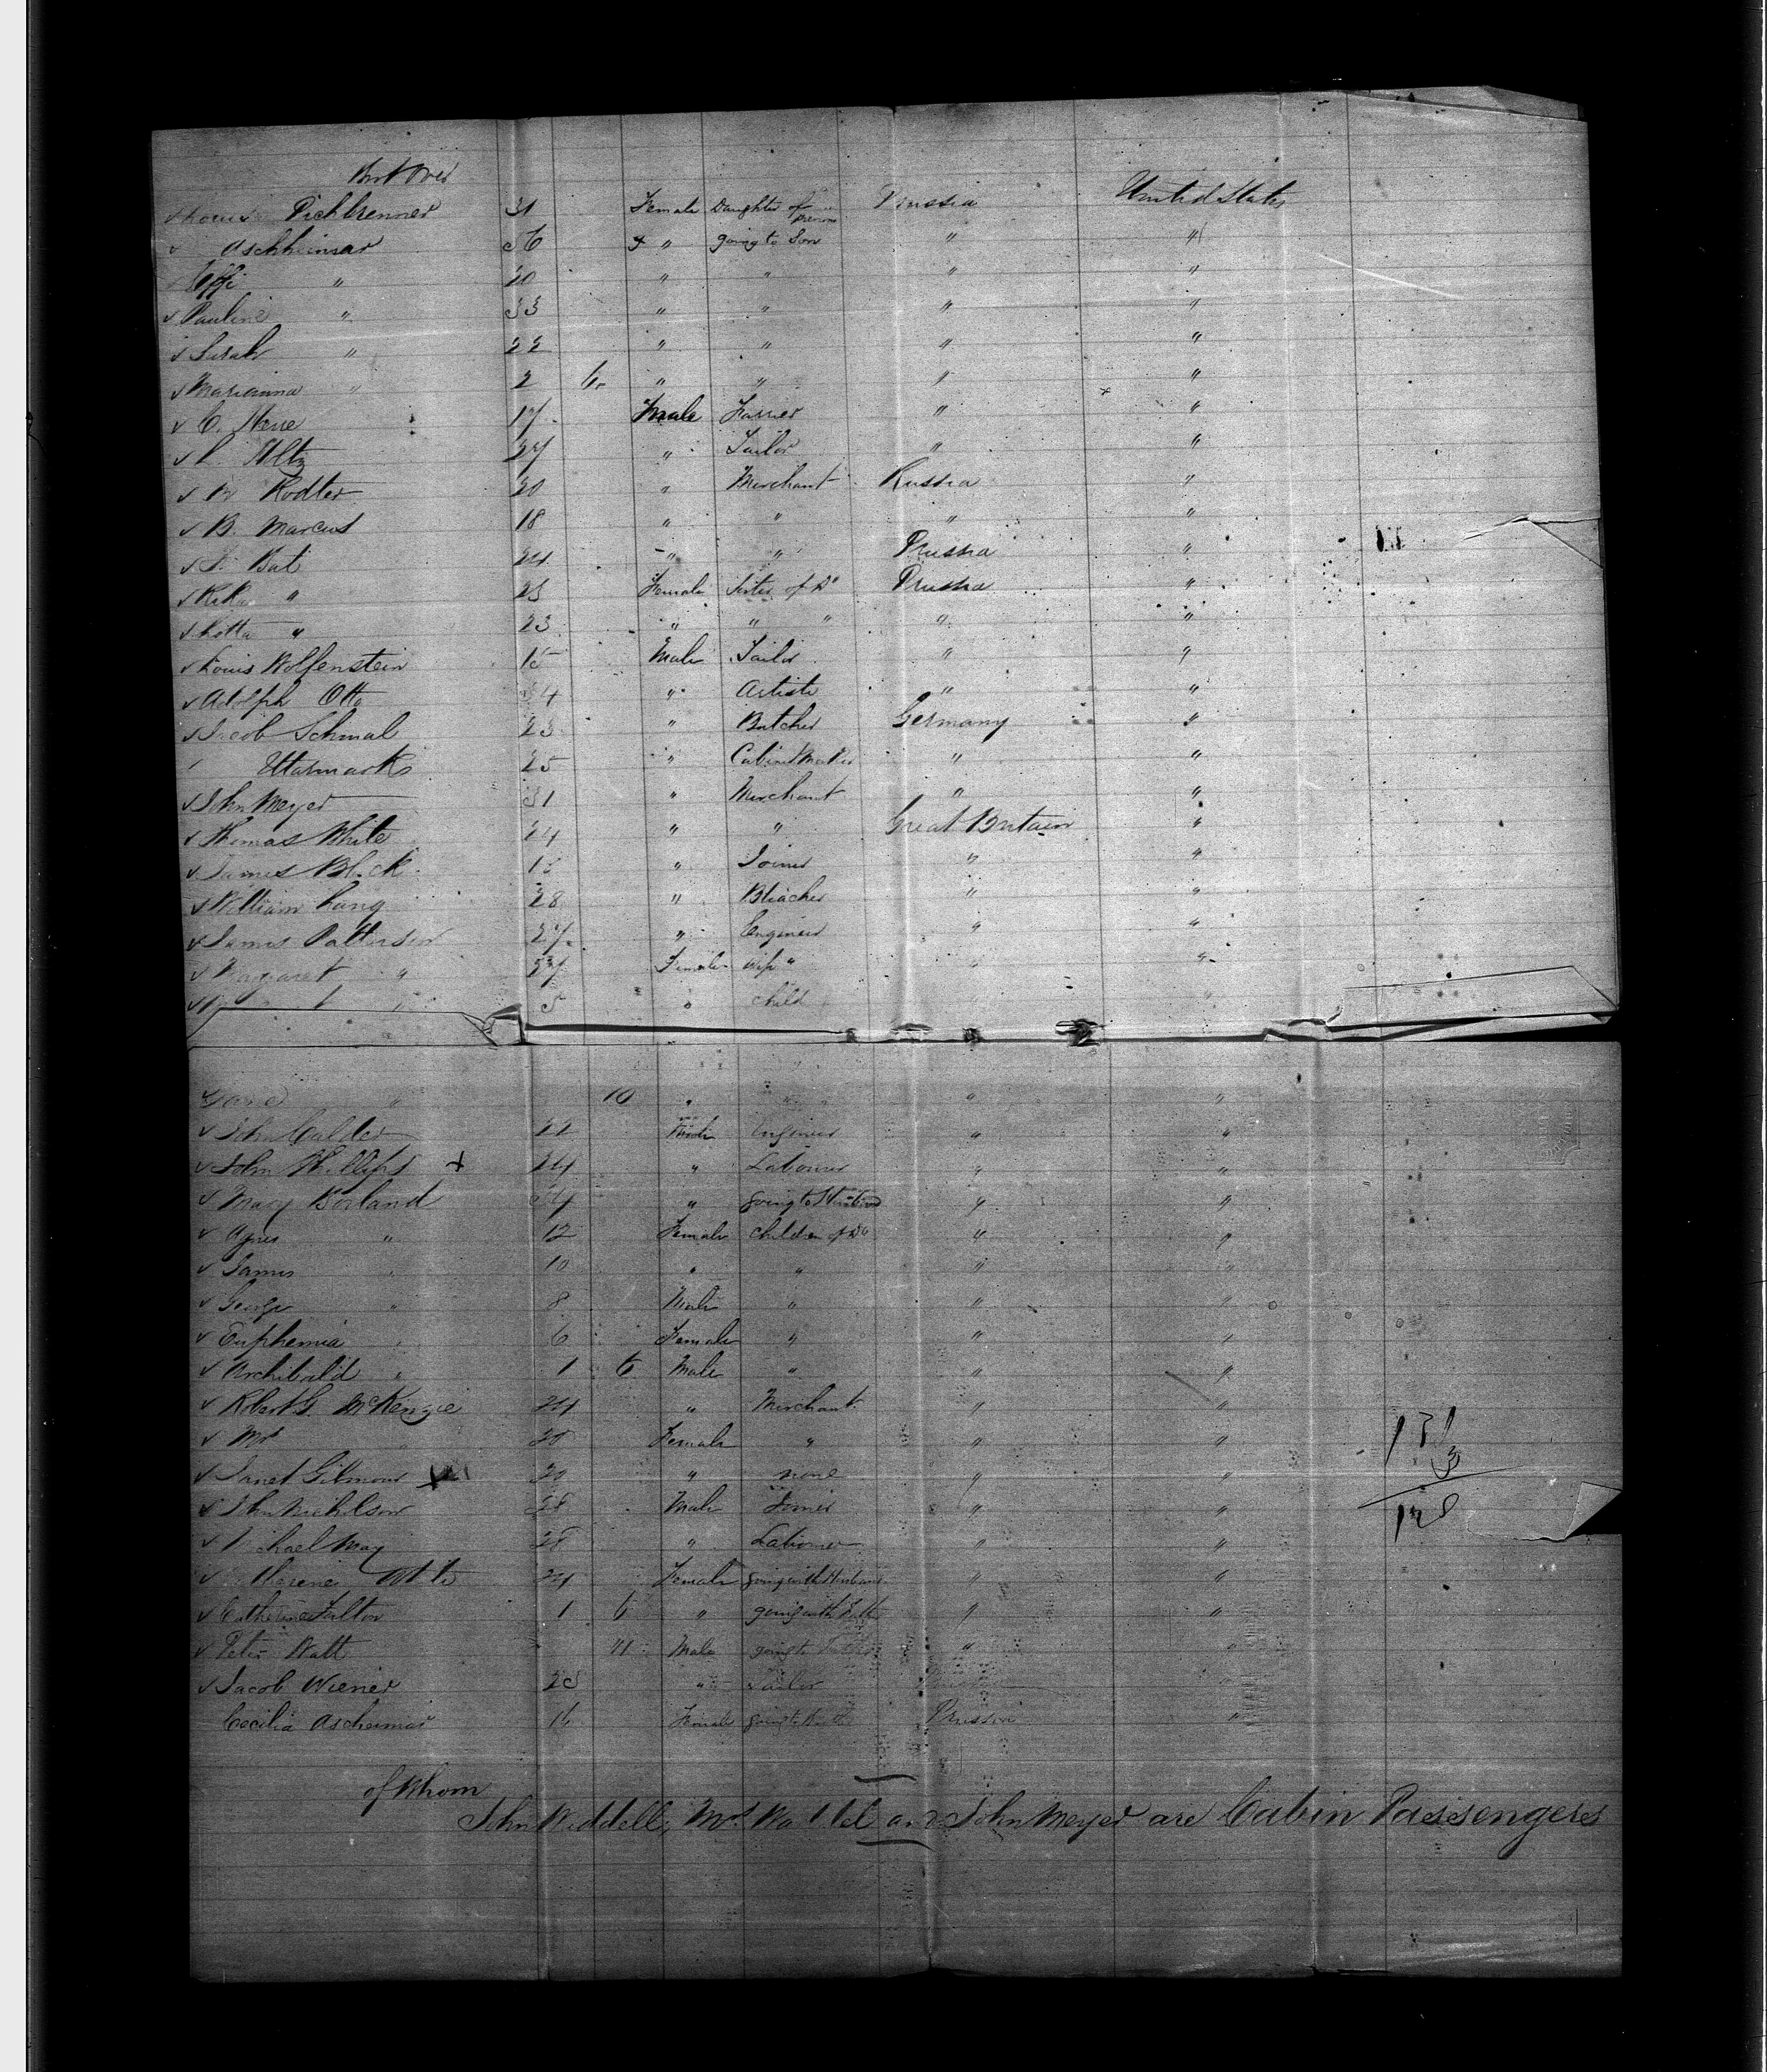 Brot Over
Louisa Pichbrenner 31 Female Daughter of Prussia United States
Aschheimar 56 " going to Son " "
Effi " 20 " " " "
Pauline " 33 " " " "
Sarah " 22 " " " "
Marianna " 2 6 " " " "
C. 17 Male " "
27 " Tailor " "
Rodter 20 " Merchant Russia "
B. Marcus 18 " " " "
Bat 24 " " Prussia "
Rika " 23 Female Sister of Do Prussia "
Lotta " 23 " " " " "
Louis Wolfenstein 15 Male Tailor " "
Adolph Otto 34 " Artiste " "
Jacob Schmal 23 " Butcher Germany "
25 " Cabinet Maker " "
John Meyer 31 " Merchant " "
Thomas White 24 " " Great Britain "
James Black " Joiner " "
William Lang 28 " Bleacher " "
James Patterson 27 " Engineer " "
Margaret " 27 Female wife " " "
" 5 " child
Jane " 10 " " " " "
John Calder 22 Male Engineer " "
John Phillips + 24 " Labourer " "
Mary Borland 34 " going to Husband " "
Agnes " 12 Female children of Do " "
James " 10 " " " "
George " 8 Male " " "
Euphemia " 6 Female " " "
Archibald " 1 6 Male " " "
Robert G. McKenzie 24 " Merchant " "
Mrs " 20 Female " " "
Janet Gilmour 20 " none " "
John Nicholson 28 Male Joiner " "
Michael May 28 " Labourer " "
Catherine 24 Female going with Husband " "
Catherine Fulton 1 6 " going with " "
Peter Watt 11 Male going to " "
Jacob Wiener 28 " Tailor "
Cecilia Ascheimar 16 Female going to Prussia "
131
3
128
of Whom
John Weddell, Mrs and John Meyer are Cabin Passengers